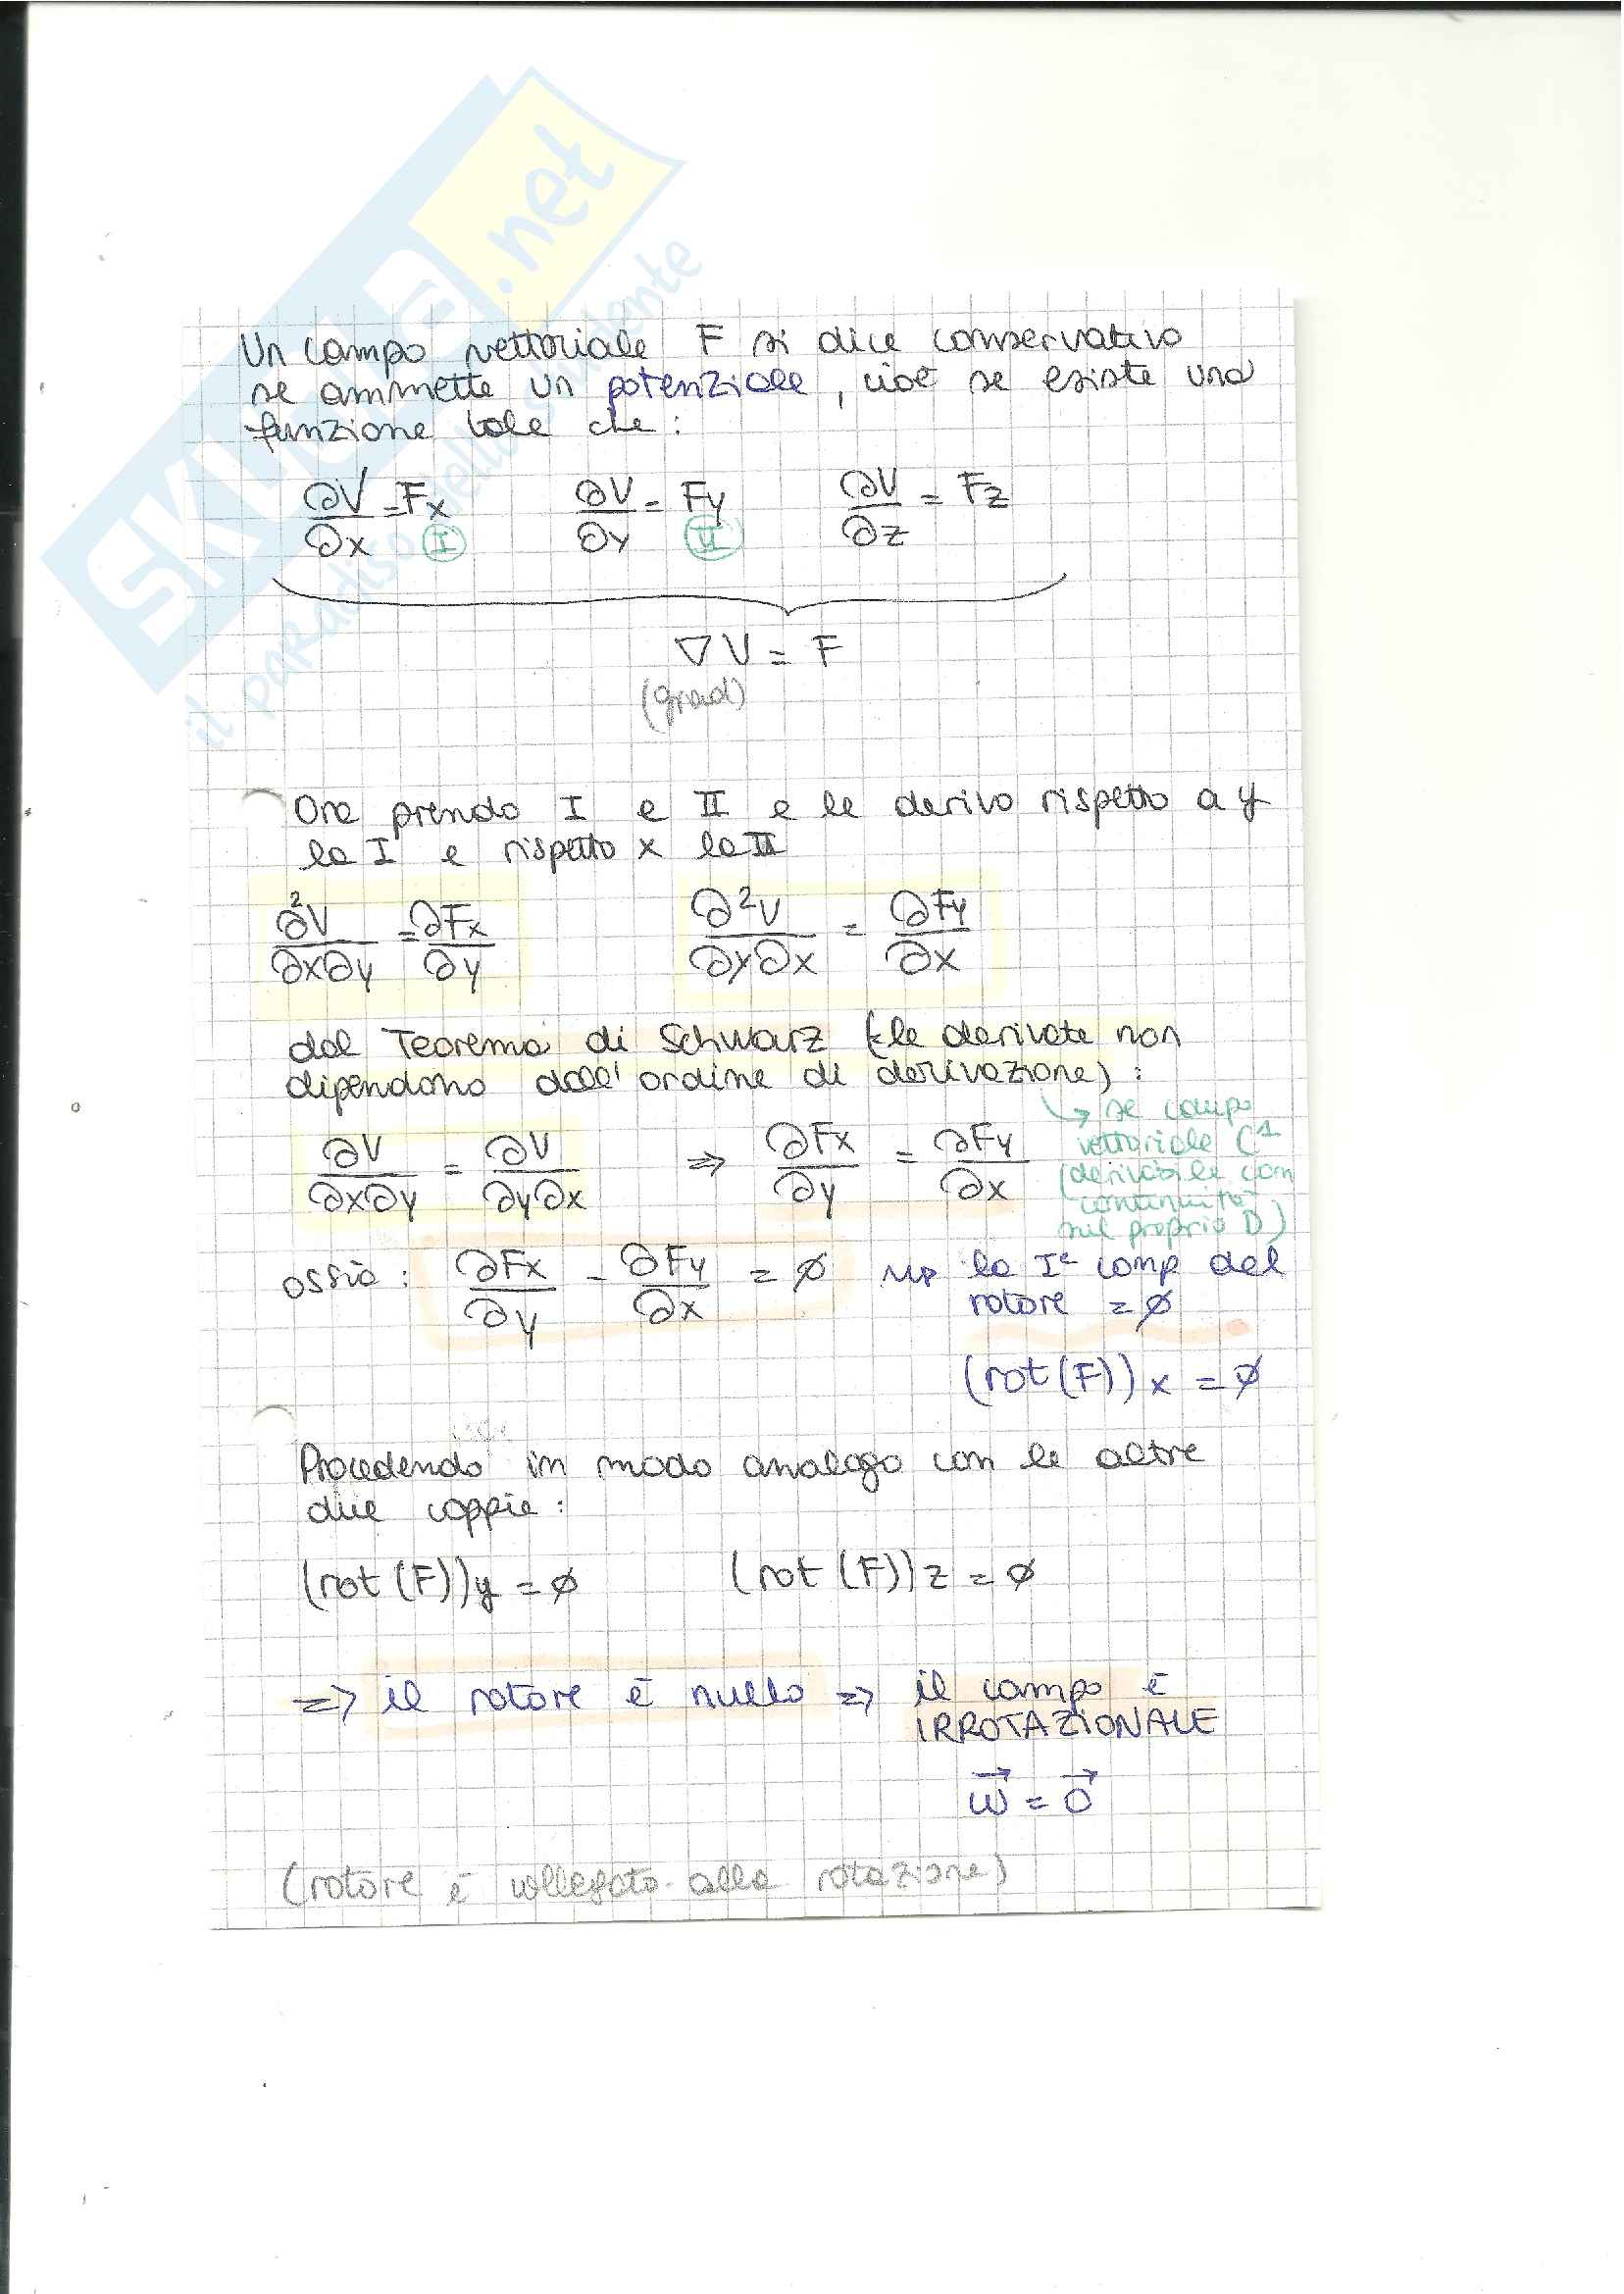 SKUOLA.net
il paradiso dello studente
Un campo vettoriale F si dice conservativo
se ammette un potenziale, cioè se esiste una
funzione tale che:
∂V/∂x = Fx (I)   ∂V/∂y = Fy (II)   ∂V/∂z = Fz
∇V = F
(grad)
Ora prendo I e II e le derivo rispetto a y
la I e rispetto x la II
∂²V/∂x∂y = ∂Fx/∂y   ∂²V/∂y∂x = ∂Fy/∂x
dal Teorema di Schwarz (le derivate non
dipendono dall'ordine di derivazione):
→ se campo
vettoriale C¹
(derivabile con
continuità
sul proprio D)
∂V/∂x∂y = ∂V/∂y∂x ⇒ ∂Fx/∂y = ∂Fy/∂x
ossia: ∂Fx/∂y - ∂Fy/∂x = ∅ → la Iª comp del
rotore = ∅
(rot(F))x = ∅
Procedendo in modo analogo con le altre
due coppie:
(rot(F))y = ∅   (rot(F))z = ∅
=> il rotore è nullo => il campo è
IRROTAZIONALE
w⃗ = 0⃗
(rotore è collegato alla rotazione)